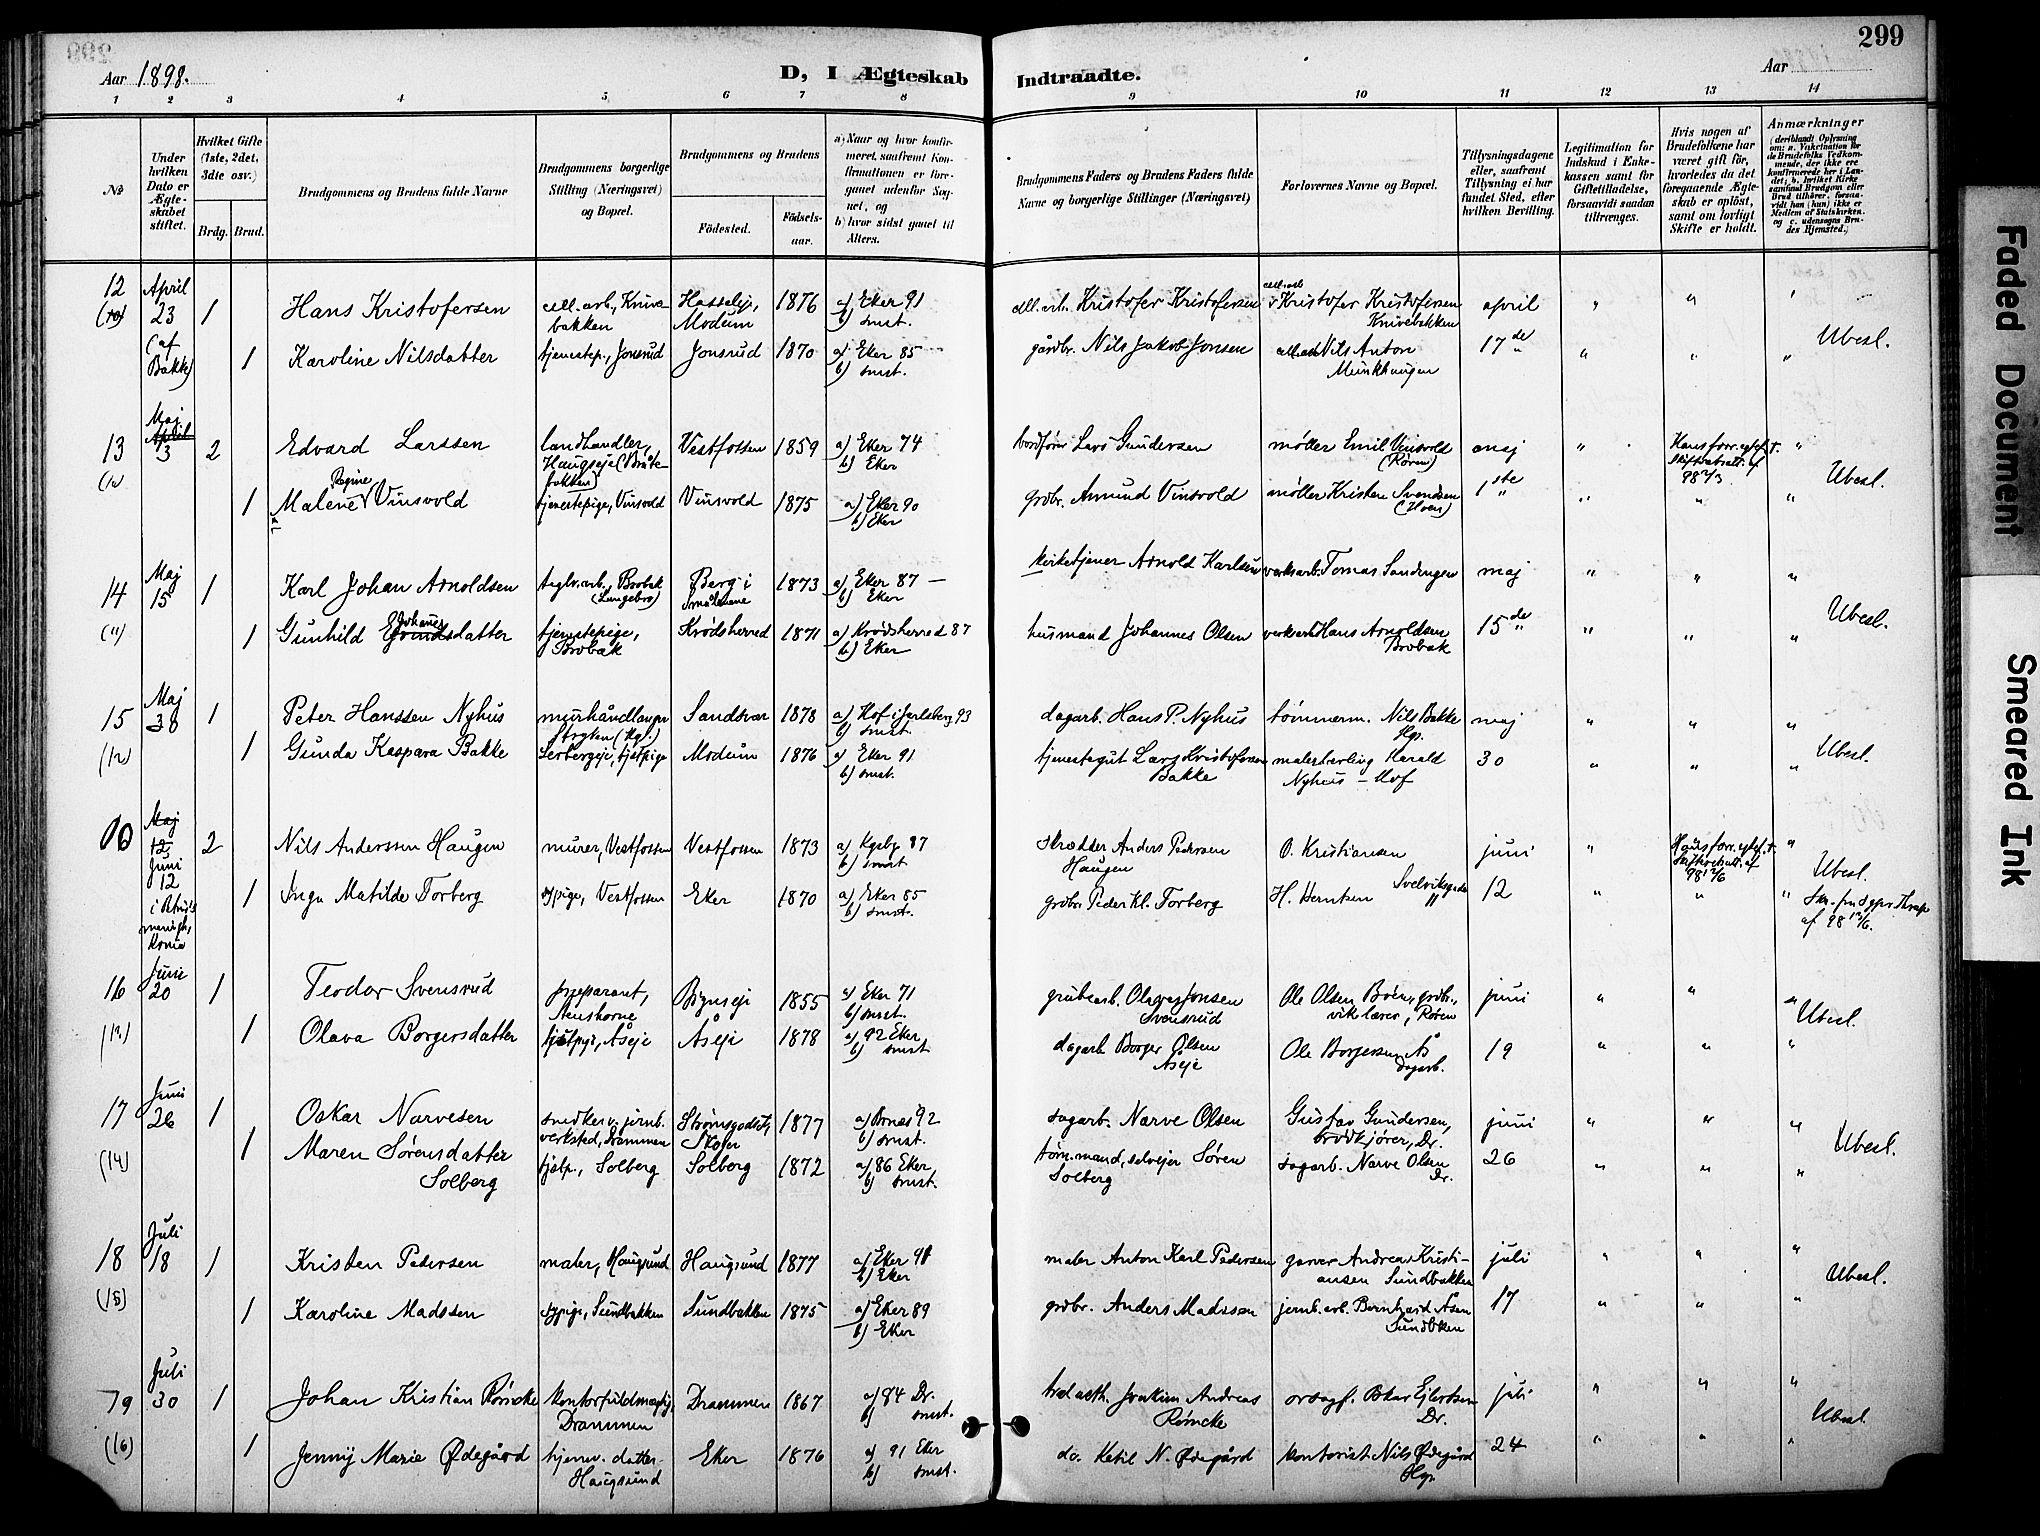 299
Aar 1898.
D, I Ægteskab Indtraadte.
Aar
1 2 3 4 5 6 7 8 9 10 11 12 13 14
No
Under hvilken Dato er Ægteskabet stiftet.
Hvilket Gifte (1ste, 2det, 3die osv.)
Brdg. Brud.
Brudgommens og Brudens fulde Navne
Brudgommens borgerlige Stilling (Næringsvei) og Bopæl.
Brudgommens og Brudens
Fødested.
Fødselsaar.
a) Naar og hvor konfirmeret, saafremt Konfirmationen er foregaaet udenfor Sognet, og
b) hvor sidst gaaet til Alters.
Brudgommens Faders og Brudens Faders fulde Navne og borgerlige Stillinger (Næringsvei)
Forlovernes Navne og Bopæl.
Tillysningsdagene eller, saafremt Tillysning ei har fundet Sted, efter hvilken Bevilling.
Legitimation for Indskud i Enkekassen samt for Giftetilladelse, forsaavidt saadan tiltrænges.
Hvis nogen af Brudefolkene har været gift før, hvorledes da det foregaaende Ægteskab er opløst, samt om lovligt Skifte er holdt.
Anmærkninger
12 April 23 1 Hans Kristofersen cell. arb., Knivebakken Hasseleje, Modum 1876 a) Eker 91 b) smst. cell. arb. Kristofer Kristofersen cell. arb. Kristofer Kristofersen Knivebakken april " " "
(10) (af Bakke) 1 Karoline Nilsdatter tjenestep., Jonsrud Jonsrud 1870 a) Eker 85 b) smst. gårdbr. Nils Jakob Jonsen cell. arb Nils Anton Munkhaugen 17de " " " Ubesl.
13 Maj 3 2 Edvard Larssen landhandler, Haugseje Vestfossen 1859 a) Eker 74 b) Eker Lars Gundersen møller Emil Vinsvold (Røren) maj " Hans forr. "
1 Malene Regine Vinsvold tjenestepige, Vinsvold Vinsvold 1875 a) Eker 90 b) Eker grdbr. Amund Vinsvold møller Kristen Svendsen 1ste " " " Ubesl.
14 Maj 15 1 Karl Johan Arnoldsen teglv.arb., Brobæk Berg i Smålenene 1873 a) Eker 87 b) Eker kirketjener Arnold Karlsen verksarb. Tomas Sandengen maj " " "
(11) 1 Gunhild Johannesdatter tjenestepige, Brobæk Krødsherred 1871 a) Krødsherred 87 b) Eker husmand Johannes Olsen verksarb Hans Arnoldsen Brobæk 15de " " " Ubesl.
15 Maj 30 1 Peter Hanssen Nyhus murhåndlanger Sandsvær 1878 a) Hof i Jarlsberg 93 b) smst. dagarb. Hans P. Nyhus tømmerm. Nils Bakke Hgs. maj " " "
(12) 1 Gunda Kaspara Bakke tjstpige Modum 1876 a) Eker 91 b) smst. tjenestegut Lars Kristofersen Bakke malerlærling Harald Nyhus – Hof 30 " " " Ubesl.
Juni 12 2 Nils Anderssen Haugen murer, Vestfossen Vestfossen 1873 a) Kgsbg 87 b) smst skrædder Anders Pedersen Haugen O. Kristiansen juni " Hans forr. "
1 Inga Matilde Torberg sypige, Vestfossen Eker 1870 a) Eker 85 b) smst. grdbr. Peder Kl. Torberg H. Berntsen Svelviksgade 12 " " Ubesl.
16 Juni 20 1 Teodor Svensrud præparant Bjgnseje 1855 a) Eker 71 b) smst. grubearb. Jonsen Svensrud Ole Olsen grdbr., Røren juni " " "
(13) 1 Olava Borgersdatter tjstpige, Åseje Åseje 1878 a) 92 Eker b) smst dagarb. Borger Olsen Åseje Ole Borgersen Ås dagarb. 19 " " " Ubesl.
17 Juni 26 1 Oskar Narvesen snedker v. jernb. verksted, Drammen Strømsgodset, Skoger 1877 a) 92 b) smst. sagarb. Narve Olsen Gustav Gundersen, brødkjører, Dr. juni " " "
(14) 1 Maren Sørensdatter Solberg tjstp., Solberg Solberg 1872 a) 86 Eker, b) smst. tøm.mand, selvejer Søren Solberg sagarb. Narve Olsen Dr. 26 " " " Ubesl.
18 Juli 18 1 Kristen Pedersen maler, Haugsund Haugsund 1877 a) Eker 91 b) Eker maler Anton Karl Pedersen garver Andreas Kristiansen Sundbakken juli " " "
(15) 1 Karoline Madssen sypige, Sundbakken Sundbakken 1875 a) Eker 89 b) Eker grdbr. Anders Madssen jernb. arb. Bernhard Åsen Sundbken 17 " " " Ubesl.
19 Juli 30 1 Johan Kristian Römcke kontorfuldmægtig, Drammen Drammen 1867 a) 84 Dr. b) smst. Joakim Andreas Römcke Oskar Ejlertsen Dr. juli " " "
(16) 1 Jenny Marie Ødegård datter Haugsund Eker 1876 a) 91 Eker b) smst. do. Ketil N. Ødegård kontorist Nils Ødegård Hgs. 24 " " " Ubesl.
Faded Document
Smeared Ink